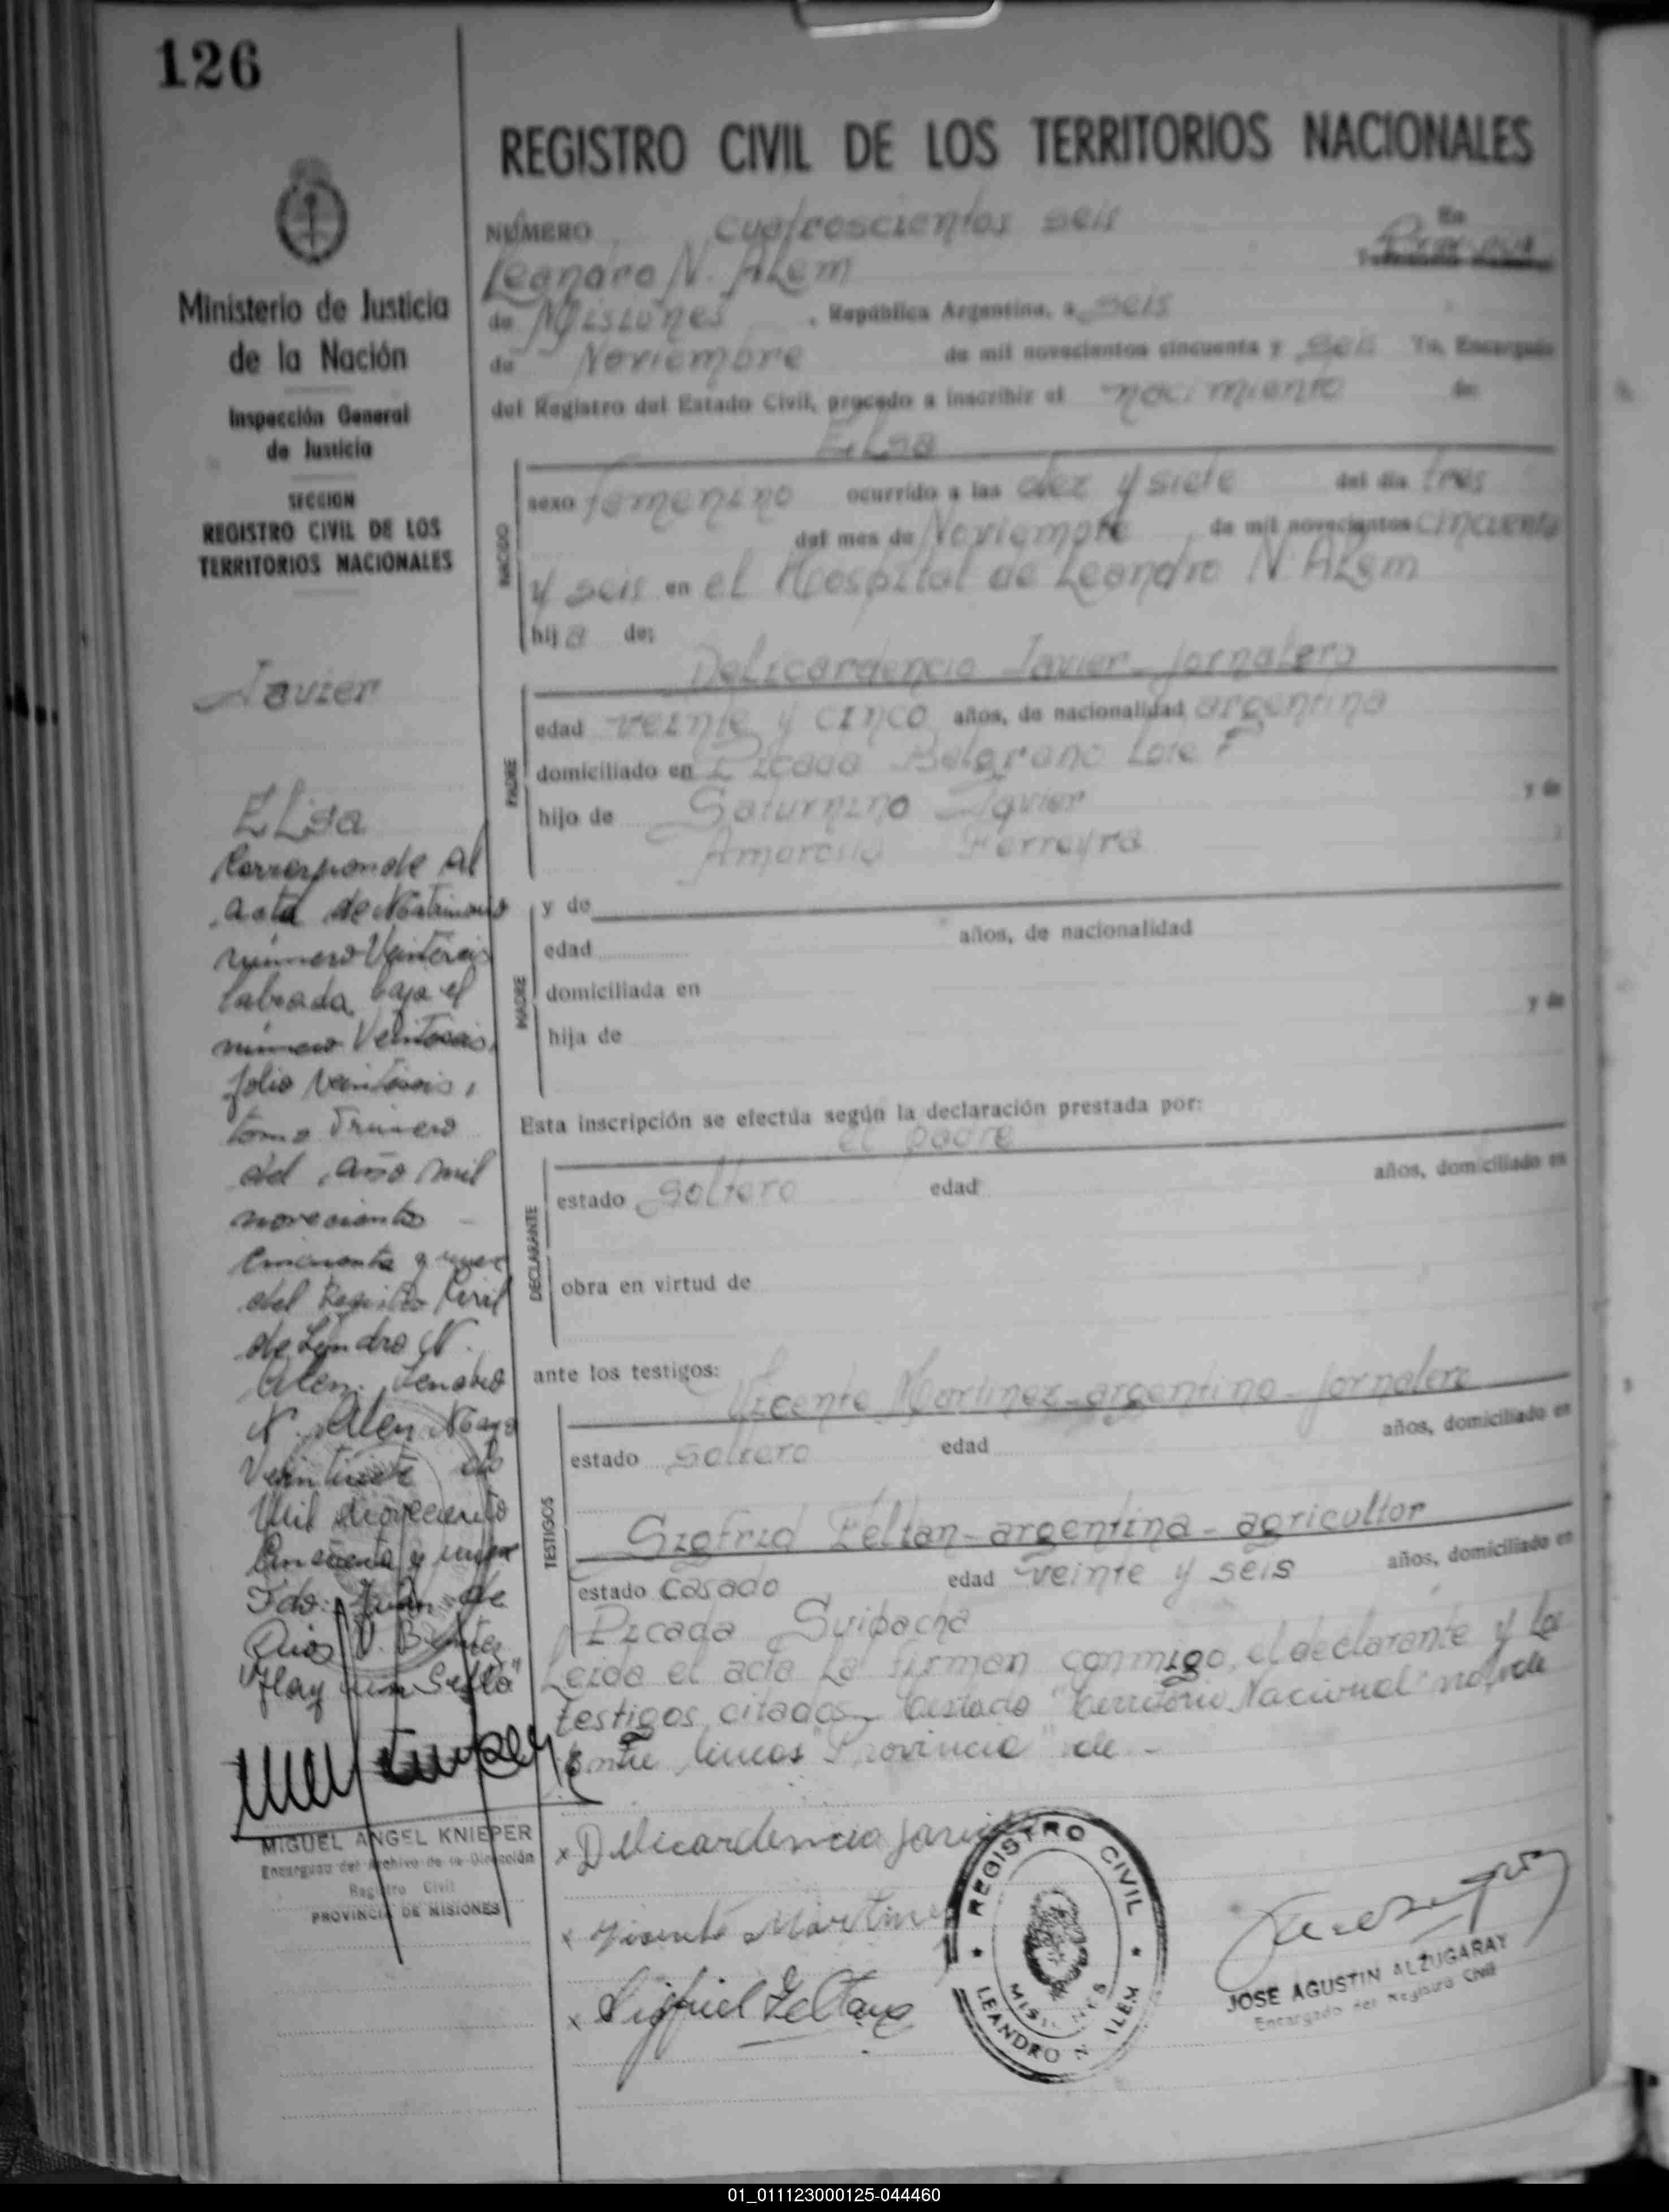 126
REGISTRO CIVIL DE LOS TERRITORIOS NACIONALES
NÚMERO cuatroscientos seis En
Leandro N. ALem Provincia
de Misiones, República Argentina, a seis
de Noviembre de mil novecientos cincuenta y seis Yo, Encargado
del Registro del Estado Civil, procedo a inscribir el nacimiento de:
ELsa
NACIDO
sexo femenino ocurrido a las diez y siete del día tres
del mes de Noviembre de mil novecientos cincuenta
y seis en el Hospital de Leandro N. ALem
hija de:
PADRE
Delicardencio Javier - jornalero
edad veinte y cinco años, de nacionalidad argentina
domiciliado en Picada Belgrano Lote
hijo de Saturnino Javier y de
Ferreyra
MADRE
y de
edad años, de nacionalidad
domiciliada en
hija de y de
Esta inscripción se efectúa según la declaración prestada por:
el padre
DECLARANTE
estado soltero edad años, domiciliado en
obra en virtud de
ante los testigos:
TESTIGOS
Vicente Martinez - argentino - jornalero
estado soltero edad años, domiciliado en
Sigfrid Feltan - argentina - agricultor
estado casado edad veinte y seis años, domiciliado en
Picada Suipacha
Leida el acta la firman conmigo, el declarante y los
testigos citados. Testado "Territorio Nacional" no vale
Entre lineas "Provincia" vale -
Ministerio de Justicia
de la Nación
Inspección General
de Justicia
SECCION
REGISTRO CIVIL DE LOS
TERRITORIOS NACIONALES
Javier
ELsa
Corresponde al
acta de Matrimonio
número Veintiseis
labrada bajo el
número Veintiseis,
folio veintiseis,
tomo Primero
del año mil
novecientos
cincuenta y nueve
del Registro Civil
de Leandro N.
Alem. Leandro
N. Alem Mayo
Veintisiete de
Mil novecientos
Cincuenta y nueve
Fdo: Juan de
Dios V. Benitez
"Hay un Sello"
MIGUEL ANGEL KNIEPER
Encargado del Archivo de la Dirección
Registro Civil
PROVINCIA DE MISIONES
x Delicardencio Javier
x Vicente Martinez
x Sigfried Feltan
REGISTRO CIVIL
MISIONES
LEANDRO N. ALEM
JOSE AGUSTIN ALZUGARAY
Encargado del Registro Civil
01_011123000125-044460